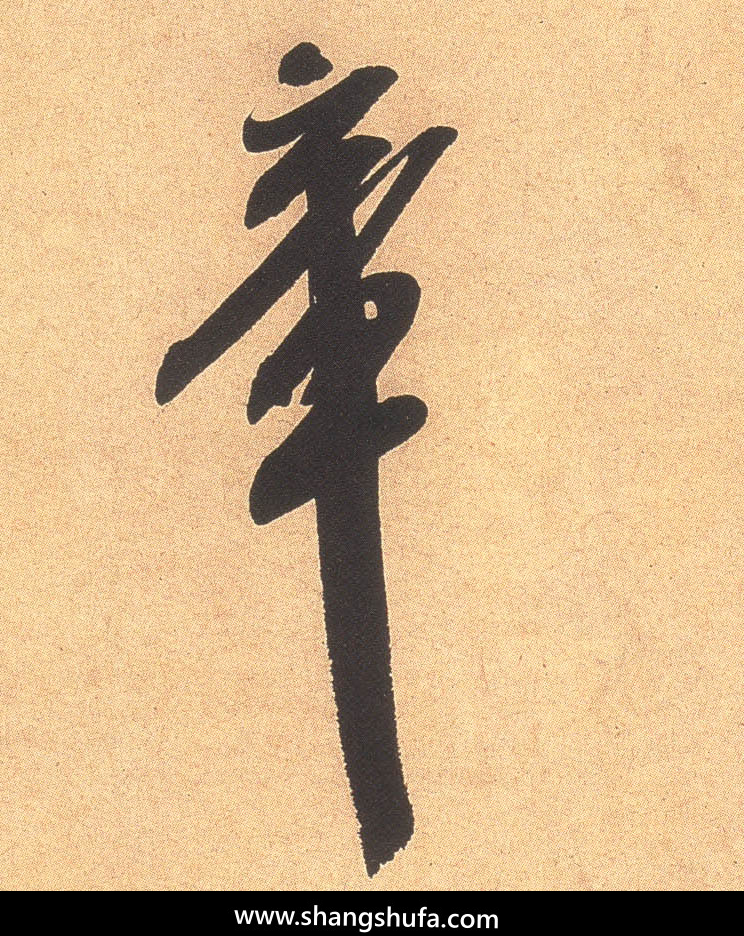 章
www.shangshufa.com